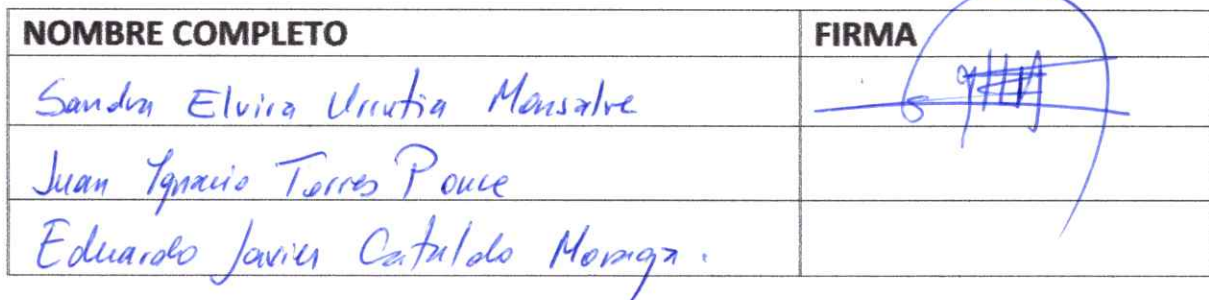 NOMBRE COMPLETO FIRMA
Sandra Elvira Urrutia Monsalve
Juan Ignacio Torres Ponce
Eduardo Javier Cataldo Moraga.